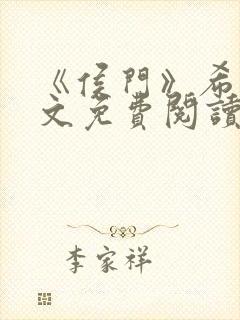 《侯門》希
文免費閱讀
李家祥